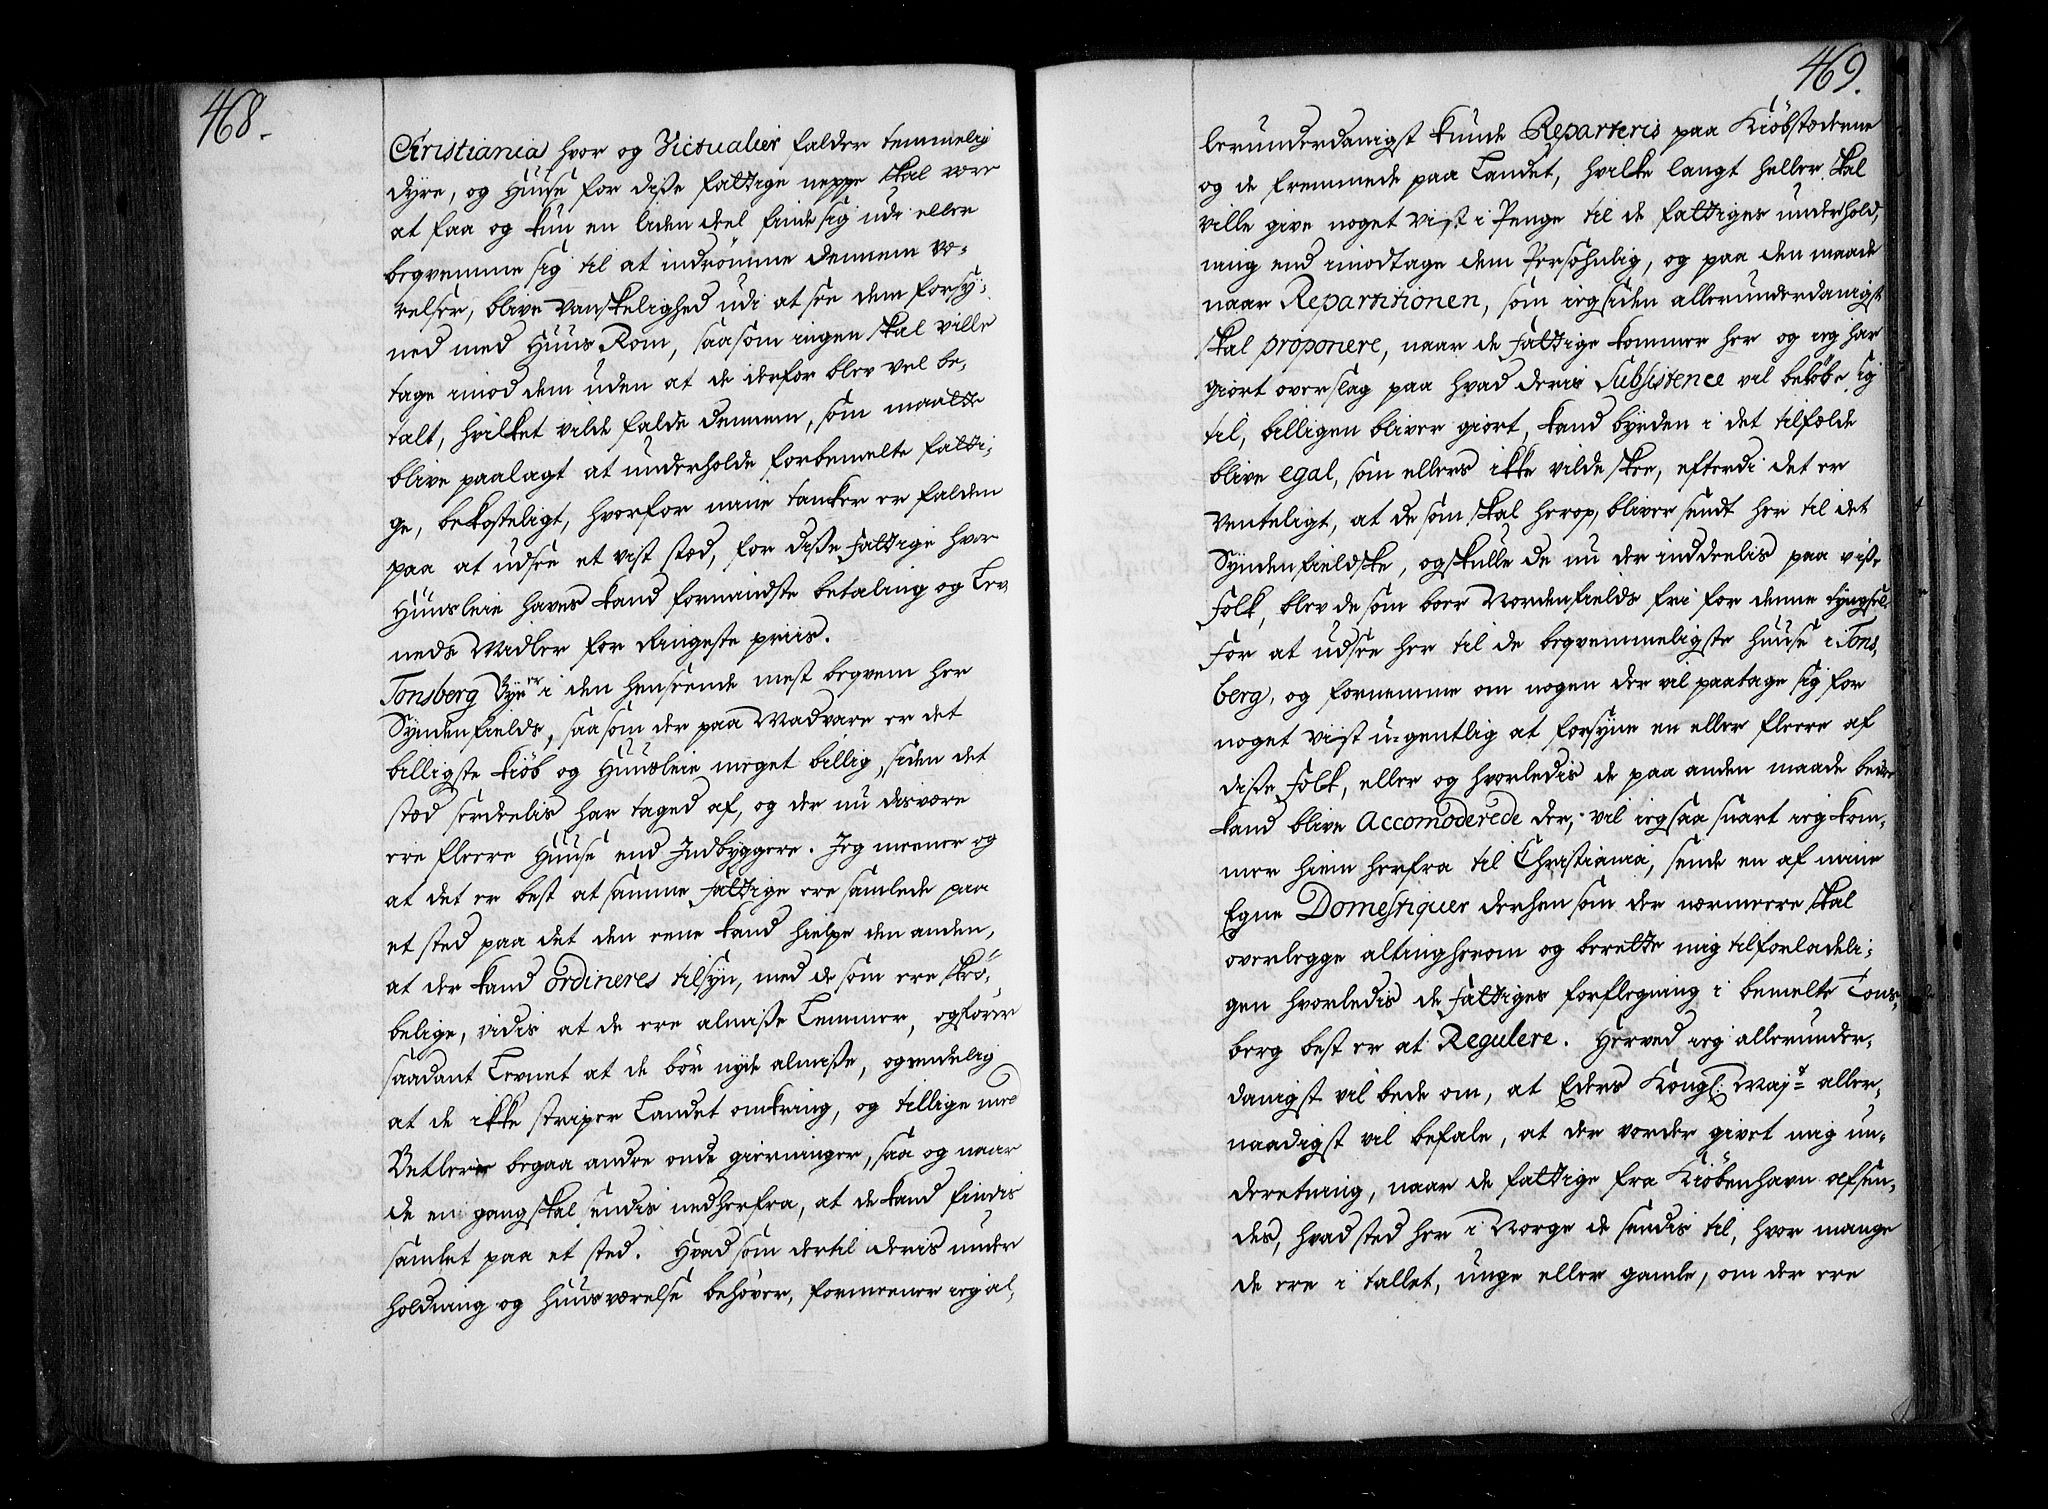 468.
Christiania hvor og Victualier falder temmelig
dÿre, og Huuse for diße fattige neppe skal være
at faa og kun en liden deel finde sig udi eller
beqvemme sig til at indrömme dennem Væ-
relser, blive Vanskelighed udi at see dem forsÿ-
ned med Huus Rom, saasom ingen skal ville
tage imod dem uden at de derfor blev vel be-
talt, hvilket vilde falde dennem, som maatte
blive paalagt at underholde forbemelte fatti-
ge, bekosteligt, hvorfor mine tancker er falden
paa at udsee et vist stæd, for diße Fattige hvor
Huusleie haves kand for mindste betaling og Lev-
neds Midler for Ringeste priis.
Tonsberg Bÿe er i den henseende mest beqvem her
Sÿndenfields, saasom der paa Madvare er det
billigste kiöb og Huusleie meget billig, siden det
stæd serdeelis har taged af, og der nu desværre
ere fleere Huuse end Indbÿggere. Jeg meener og
at det er best at samme Fattige ere samlede paa
et sted paa det den eene kand hielpe den anden,
at der kand ordineres tilsÿn, med de som ere skrö-
belige, vidis at de ere almiße Lemmer, og förer
saadant Levnet at de bör nÿde almiße, og endelig
at de ikke striper Landet omkring, og tillige med
Betlerie begaa andre onde gierninger, saa og naar
de en gang skal sendis ned herfra, at de kand findis
samlet paa et sted. Hvad som dertil deris under
holdning og huusværelse behöver, formeener ieg al-
469.
lerunderdanigst kunde Reparteris paa Kiöbstæderne
og de fremmede paa Landet, hvilke langt heller skal
ville give noget vist i Penge til de fattiges underhold,
ning end imodtage dem Persohnlig, og paa den maade
naar Repartitionen, som ieg siden allerunderdanigst
skal proponere, naar de Fattige kommer her og ieg har
giort overslag paa hvad deris Subsistence vil beløbe sig
til, billigen bliver giort, kand bÿrden i det tilfælde
blive egal, som ellers ikke vilde skee, efterdi det er
Venteligt, at de som skal herop, bliver sendt her til det
Sÿndenfieldske, og skulle de nu der inddeelis paa viße
Folk, blev de som boer Nordenfields fri for denne tÿngsel.
For at udsee her til de beqvemmeligste huuse i Tons,
berg, og fornemme om nogen der vil paatage sig for
noget vist ugentlig at forsÿne en eller fleere af
diße Folk, eller og hvorledis de paa anden maade bedre
kand blive Accomoderede der, vil ieg saa snart ieg kom-
mer hiem herfra til Christiania, sende en af mine
Egne Domestiquer derhen som der nærmere skal
overlegge alting herom og berette mig tilforladeli-
gen hvorledis de Fattiges forflegning i bemelte Tons-
berg best er at Regulere. Herved ieg allerunder-
danigst vil bede om, at Eders Kongl: Majt aller-
naadigst vil befale, at der vorder givet mig un-
derretning, naar de fattige fra Kiöbenhavn afsen-
des, hvad sted her i Norge de sendis til, hvor mange
de ere i tallet, unge eller gamle, om der ere